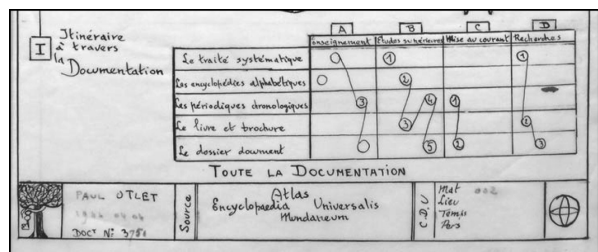 A B C D
I
Itinéraire
à travers
la
Documentation
enseignement Études supérieures Mise au courant Recherches
Le traité systématique 1 1
Les encyclopédies alphabétiques 2
Les périodiques chronologiques 3 4 1
Le livre et brochure 3 2
Le dossier document 5 2 3
TOUTE LA DOCUMENTATION
PAUL OTLET
DOCT Nº 3751
Source
Atlas
Encyclopaedia Universalis
Mundaneum
C.D.U
Mat 002
Lieu
Temps
Pers